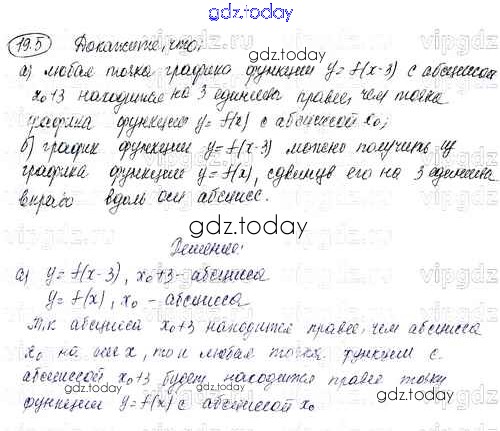 gdz.today
19.5 Докажите, что:
а) любая точка графика функции y=f(x-3) с абсциссой
x₀+3 находится на 3 единицы правее, чем точка
графика функции y=f(x) с абсциссой x₀;
б) график функции y=f(x-3) можно получить из
графика функции y=f(x), сдвинув его на 3 единицы
вправо вдоль оси абсцисс.
gdz.today
Решение:
а) y=f(x-3), x₀+3 - абсцисса
y=f(x), x₀ - абсцисса
Т.к абсцисса x₀+3 находится правее, чем абсцисса
x₀ на оси x, то и любая точка функции с
абсциссой x₀+3 будет находится правее точки
функции y=f(x) с абсциссой x₀
gdz.today